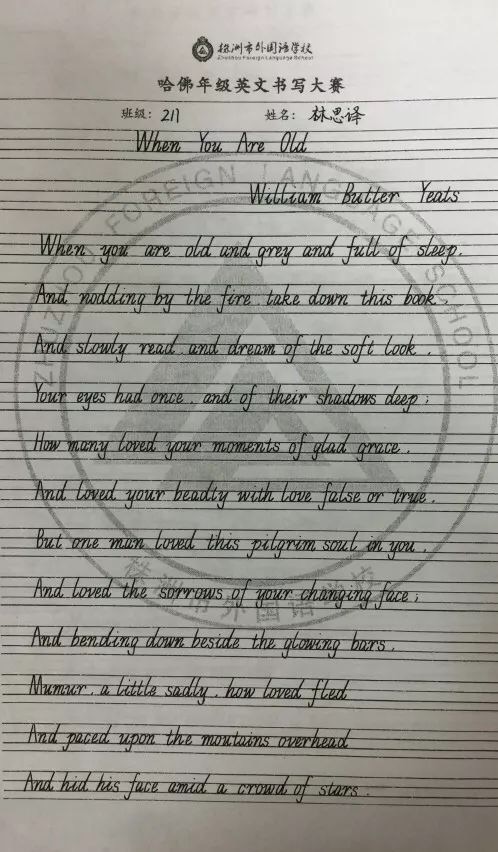 株洲市外国语学校
Zhuzhou Foreign Language School
哈佛年级英文书写大赛
班级：211 姓名：林思译
When You Are Old
William Butter Yeats
When you are old and grey and full of sleep.
And nodding by the fire, take down this book,
And slowly read, and dream of the soft look,
Your eyes had once, and of their shadows deep;
How many loved your moments of glad grace,
And loved your beadty with love false or true,
But one man loved this pilgrim soul in you,
And loved the sorrows of your changing face;
And bending down beside the glowing bars,
Mumur, a little sadly, how loved fled
And paced upon the moutains overhead
And hid his face amid a crowd of stars.
ZHUZHOU FOREIGN LANGUAGE SCHOOL
株洲市外国语学校